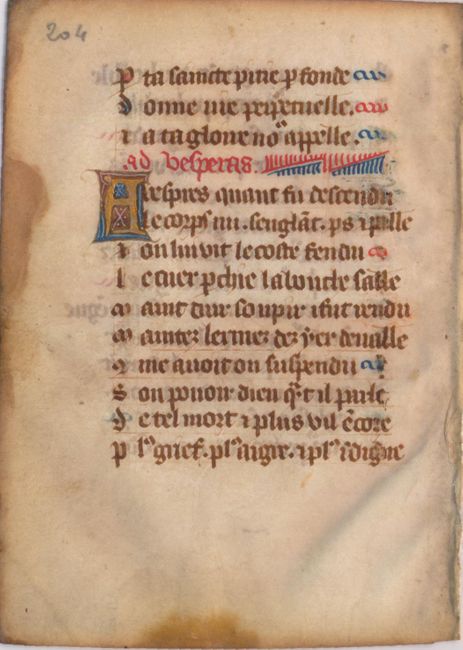 204
P ta saincte pitie pfonde
D onne vie perpetuelle.
Et a ta gloire noꝰ appelle.
ad vesperas.
A vespres quant fu descendu
le corps nu. senglāt. ps ⁊ palle
on lui vit le coste fendu
l e cuer pchie la boucle salle
M aint dur soupir ⁊ fut rendu
M aintez lermez dez yex devalle
me avoit on suspendu
S on pouoir dieu qͣt il parle
D e tel mort ⁊ plus vil ēcore
P lꝰ grief. plꝰ aigre. ⁊ plꝰ īdigne